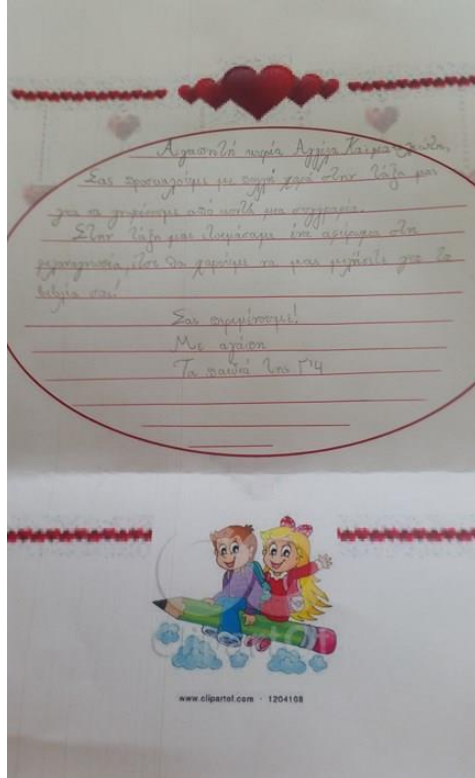 Αγαπητή κυρία Αγγέλα
Σας προσκαλούμε με πολλή χαρά στην τάξη μας
για να γνωρίσουμε από κοντά μια συγγραφέα.
Στην τάξη μας ετοιμάσαμε ένα αφιέρωμα στη
φιλαναγνωσία, έτσι θα χαρούμε να μας μιλήσετε για τα
βιβλία σας!
Σας περιμένουμε!
Με αγάπη
Τα παιδιά της Γ'4
ClipartOf
www.clipartof.com · 1204108